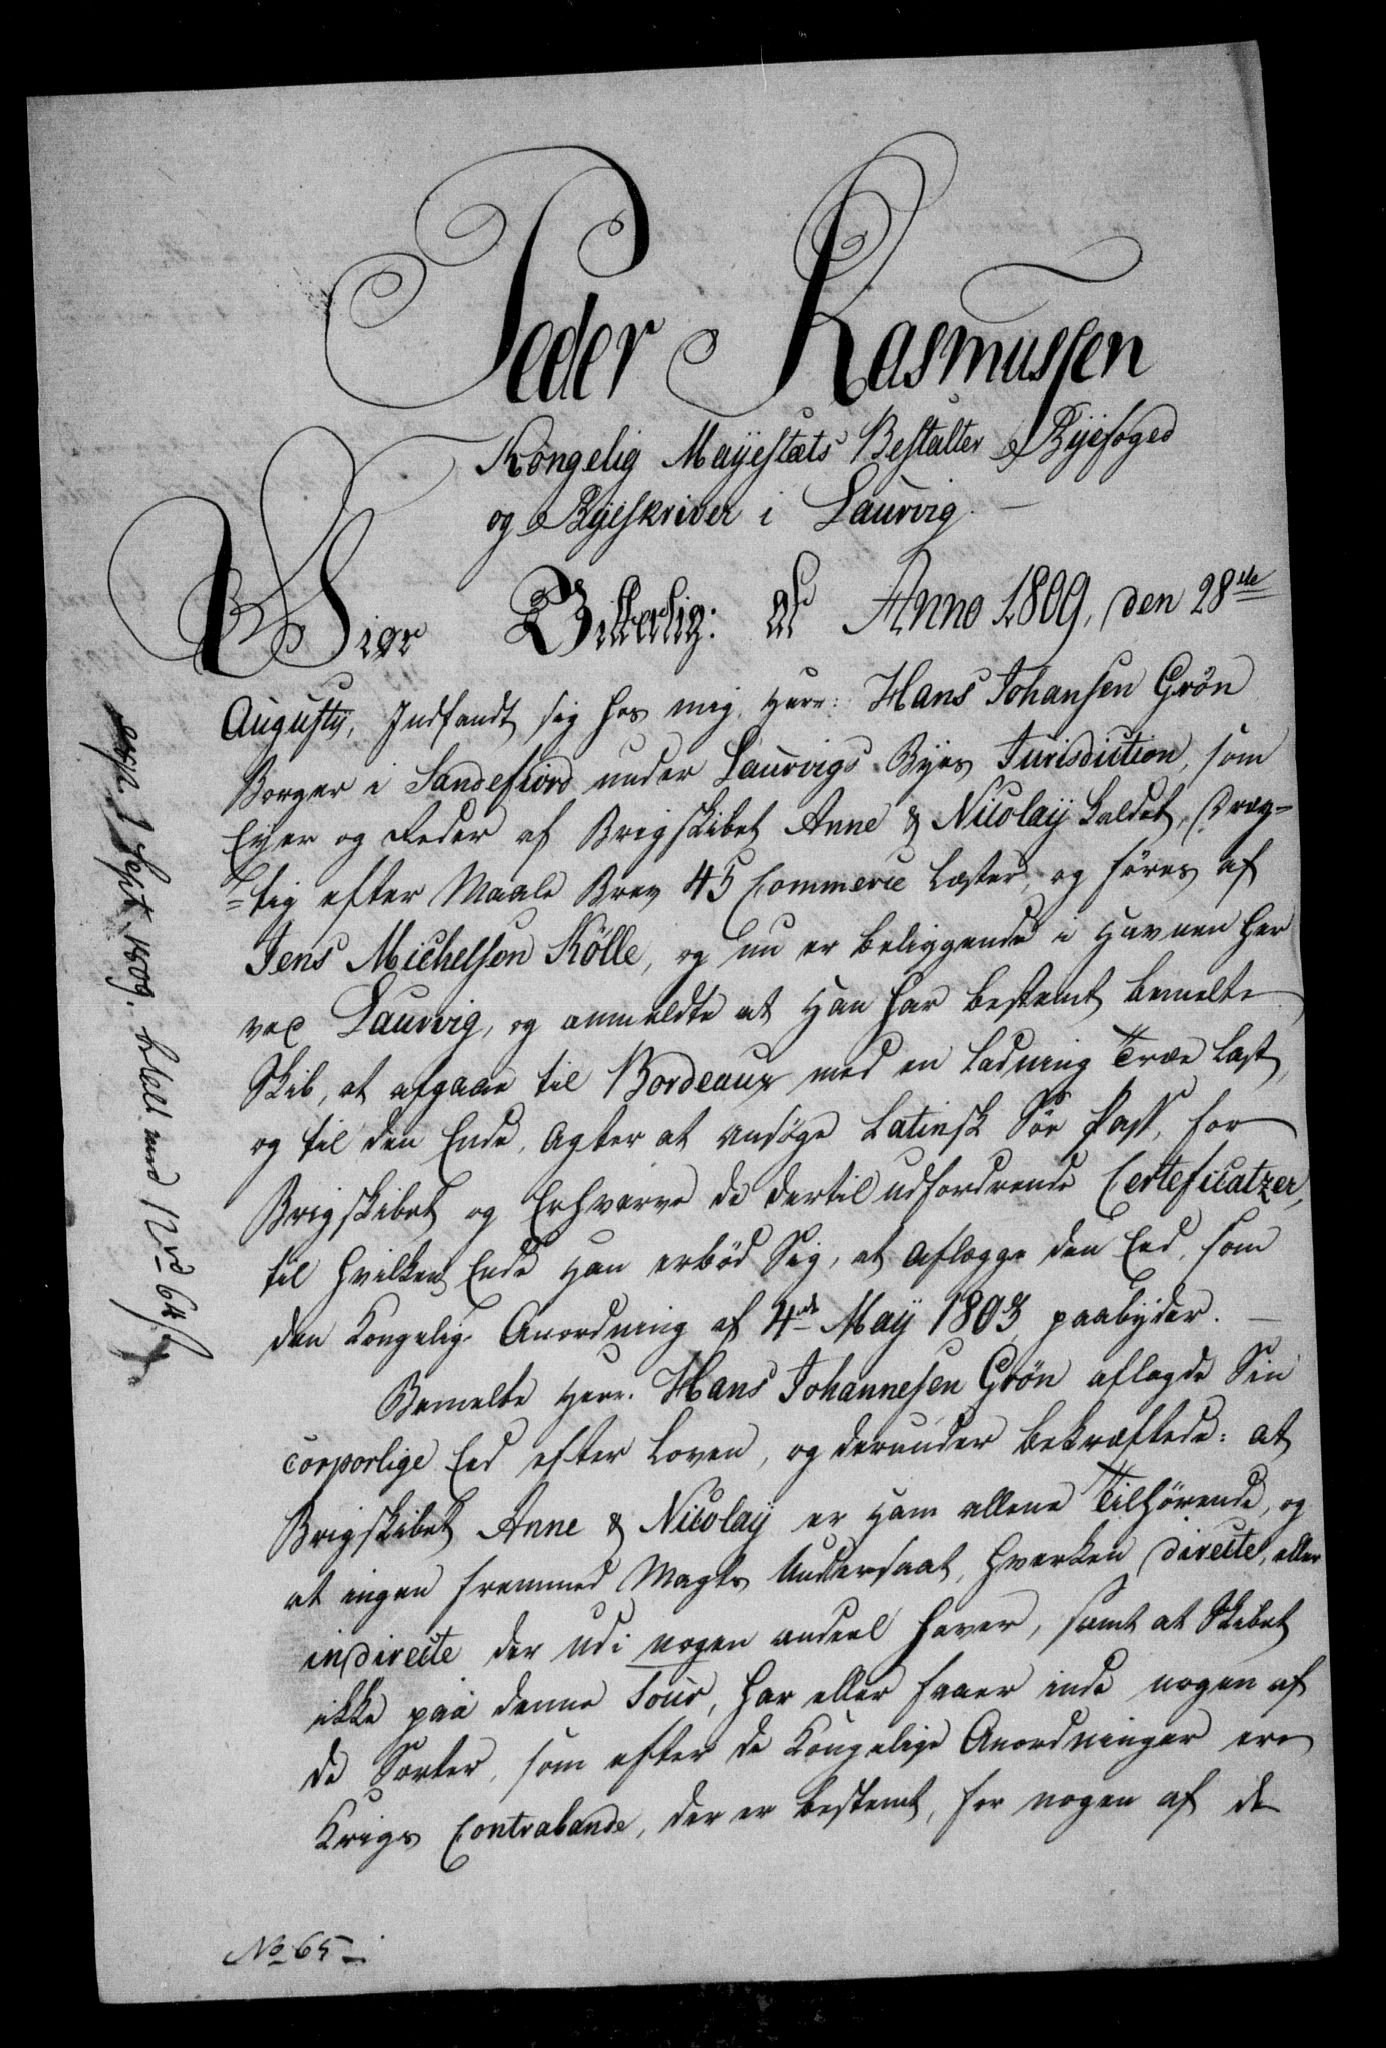 Peder Rasmussen
Kongelig Mayestæts Bestalter Byefoged
og Byeskriver i Laurvig.
Giør Vitterlig: at Anno 1809, den 28de
Augusty, Indfandt sig hos mig, Herr: Hans Johansen Grön
Borger i Sandefiord under Laurvigs Byes Jurisdiction, som
Eyer og Reder af Brigskibet Anne & Nicolaÿ kaldet, Dræg-
=tig efter Maale Brev 45 Commerce Læster, og föres af
Jens Michelsen Kölle, og nu er beliggende i Havnen her
ved Laurvig, og anmeldte at Han har bestemt bemelte
Skib, at afgaae til Bordeaux med en ladning Træe last,
og til den Ende, agter at ansöge Latinsk Söe Pass, for
Brigskibet og Erhverve de dertil udfordrende Certeficatzer,
til hvilken Ende Han erböd Sig, at aflægge den Eed, som
den Kongelig Anordning af 4de Maÿ 1803 paabyder. —
Bemelte Herr. Hans Johannesen Grön aflagde Sin
corporlige Eed efter Loven, og derunder bekræftede: at
Brigskibet Anne & Nicolaÿ er Ham allene Tilhörende, og
at ingen fremmed Magts Undersaat, hverken directe, eller
indirecte der udi nogen andeel haver, samt at Skibet
ikke paa denne Tour, har eller faaer inde nogen af
de Sorter, som efter de Kongelige Anordninger ere
Krigs Contrabande, der er bestemt, for nogen af de
No 65
Sept. 1809. betalt med 12 rd 64 s